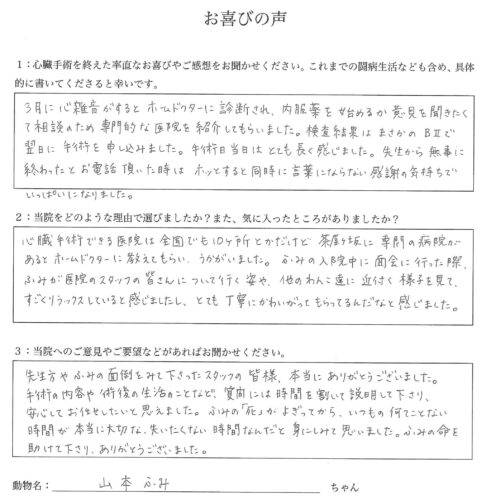 お喜びの声
1：心臓手術を終えた率直なお喜びやご感想をお聞かせください。これまでの闘病生活なども含め、具体
的に書いてくださると幸いです。
3月に心雑音がすると ホームドクターに 診断され、内服薬を始めるか 意見を聞きたく
て相談のため 専門的な医院を紹介してもらいました。検査結果は まさかの BⅡで
翌日に 手術を 申し込みました。手術日当日は とても長く感じました。先生から 無事に
終わったと お電話 頂いた時は ホッとすると同時に 言葉にならない 感謝の気持ちで
いっぱいになりました。
2：当院をどのような理由で選びましたか？また、気に入ったところがありましたか？
心臓手術できる医院は 全国でも10ヶ所とかだけど 茶屋ヶ坂に 専門の病院が
あると ホームドクターに 教えてもらい、うかがいました。ふみの入院中に 面会に行った際、
ふみが 医院のスタッフの皆さんについて行く姿や、他のわんこ達に 近付く 様子を見て、
すごくリラックスしていると感じましたし、とても 丁寧にかわいがってもらってるんだなと感じました。
3：当院へのご意見やご要望などがあればお聞かせください。
先生方や ふみの面倒をみて下さったスタッフの 皆様、本当に ありがとうございました。
手術の内容や 術後の生活のことなど、質問には時間を割いて説明して下さり、
安心してお任せしたいと思えました。ふみの「死」が よぎってから、いつもの 何てことない
時間が 本当に大切な、失いたくない 時間なんだと 身にしみて思いました。ふみの命を
助けて下さり、ありがとうございました。
動物名： 山本 ふみ ちゃん